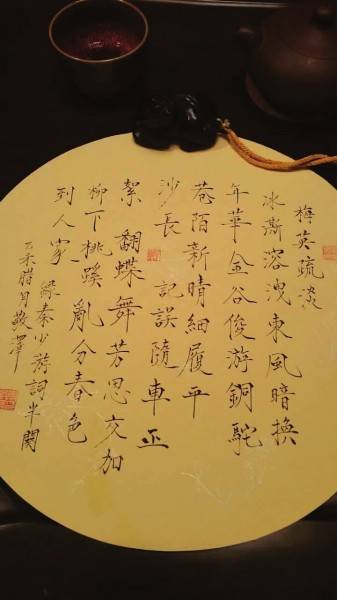 梅英疏淡
冰澌溶洩東風暗換
年華金谷俊游銅駝
巷陌新晴細履平
沙長記誤隨車正
絮翻蝶舞芳思交加
柳下桃蹊亂分春色
到人家 錄秦少游詞半闋
乙未腊月敬澤